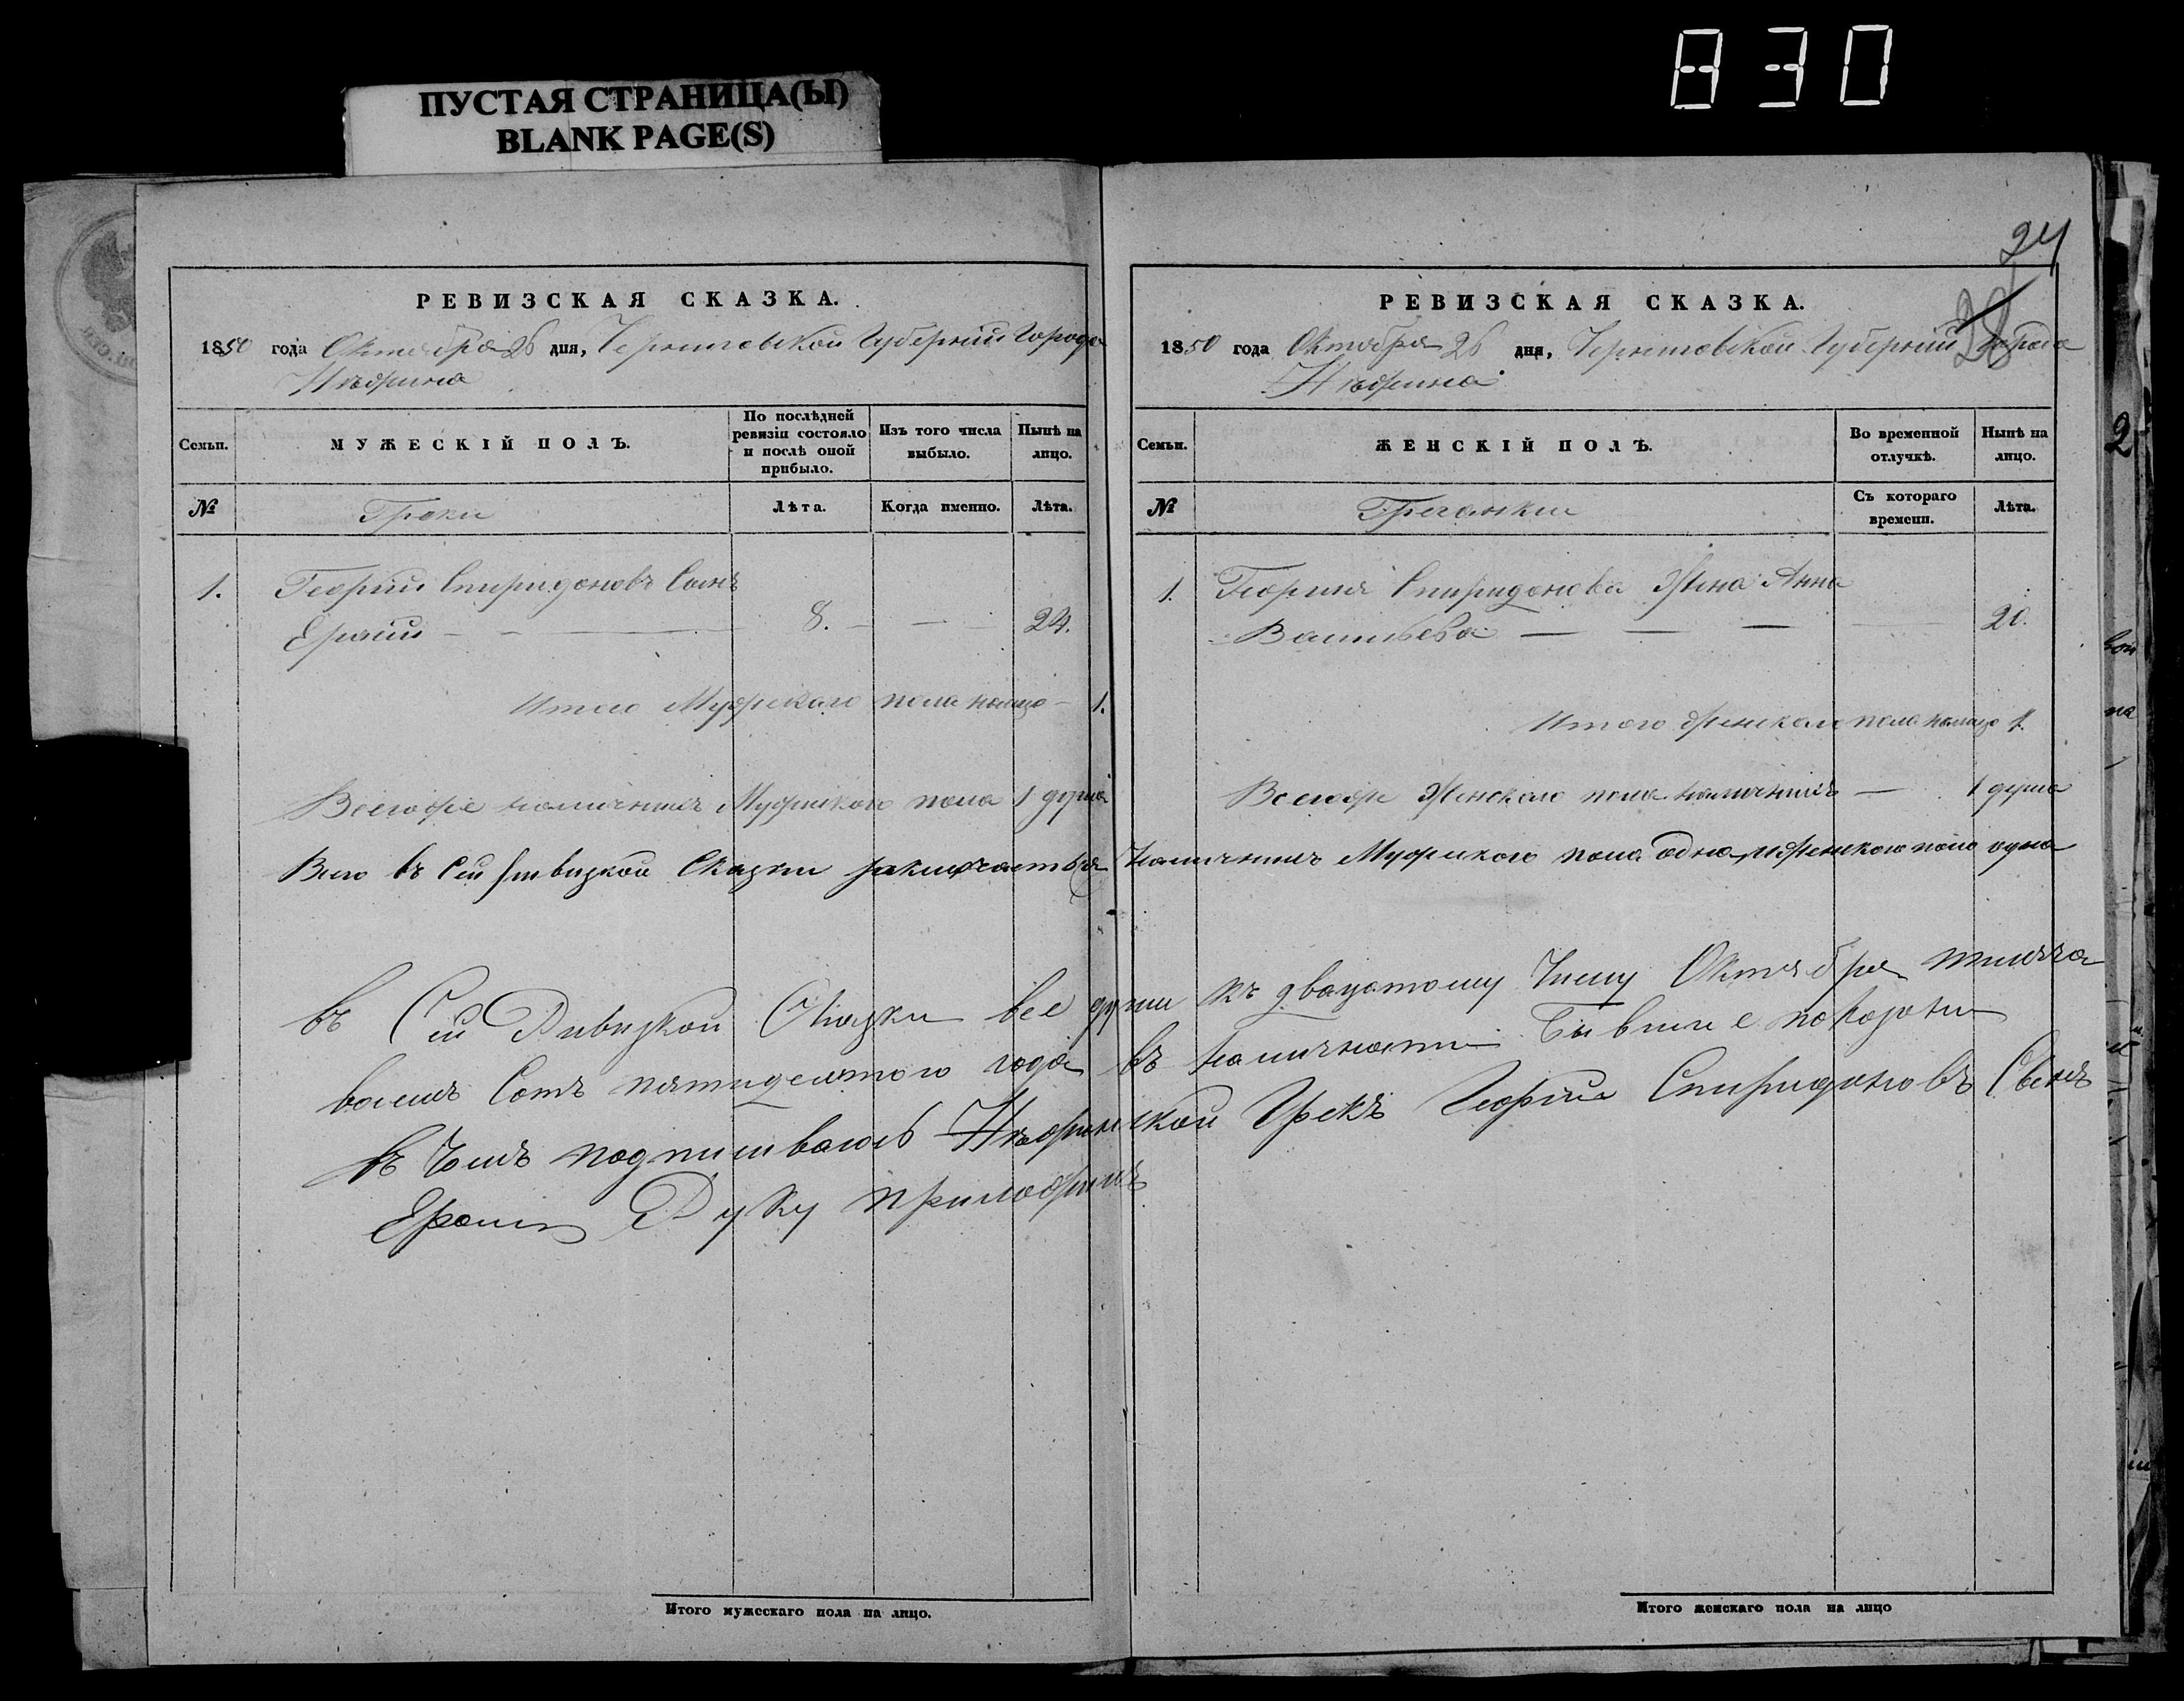 830
ПУСТАЯ СТРАНИЦА(Ы)
BLANK PAGE(S)
РЕВИЗСКАЯ СКАЗКА.
1850 года Октября 26 дня, Черниговской Губернии Города
Нѣжина
Семьи.
МУЖЕСКІЙ ПОЛЪ.
По послѣдней ревизіи состояло и послѣ оной прибыло.
Изъ того числа выбыло.
Нынѣ на лицо.
№
Греки
Лѣта.
Когда именно.
Лѣта.
1. Георгій Спиридоновъ Сынъ
8. 24.
Итого Мужескаго пола налицо 1.
Всегоже наличныхъ Мужескаго пола 1 душа
Всего въ Сей ревизкой Сказки заключаетьса
въ Сей Ревизкой Сказки все души къ двацатому Числу Октября тысяча
восемъ Сотъ пятидесятого года въ наличности бывшие показаны
въ Чомъ подписываюсь Нѣжинской Грекъ Георгій Спиридоновъ Сынъ
Руку приложилъ
Итого мужескаго пола на лицо.
24
28
РЕВИЗСКАЯ СКАЗКА.
1850 года Октября 26 дня, Черниговской Губерніи Города
Нѣжина
Семьи.
ЖЕНСКІЙ ПОЛЪ.
Во временной отлучкѣ.
Нынѣ на лицо.
№
Гречанки
Съ котораго времени.
Лѣта.
1. Георгия Спиридонова Жена Анна
Васильева
Итого Женскаго пола налицо 1.
Всегоже Женскаго пола наличныхъ 1 душа
Наличныхъ Мужескаго пола одна, и женскаго пола одна
Итого женскаго пола на лицо
2